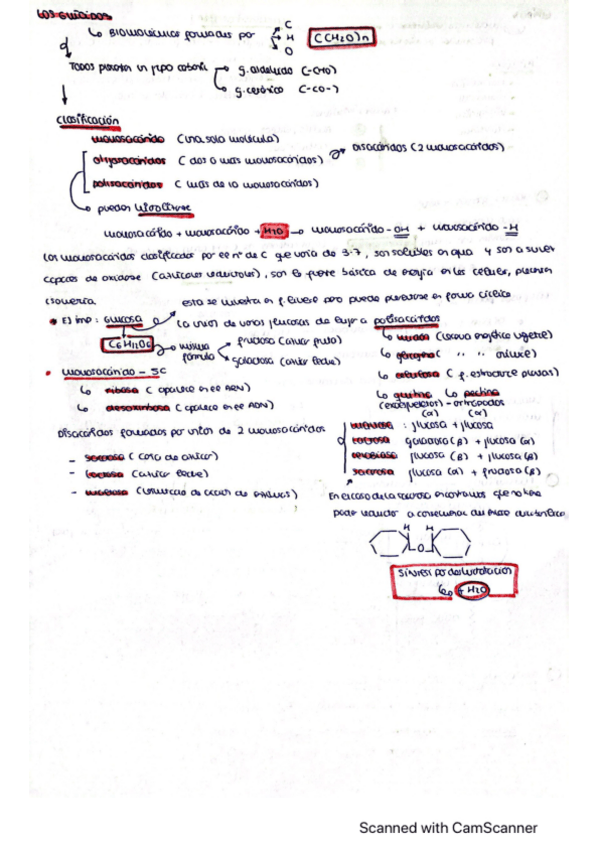 Los Glúcidos
↳ Biomoléculas formadas por C H O (CH2O)n
Todos presentan un grupo carbonilo g. aldehído (-CHO)
g. cetónico (-CO-)
Clasificación
monosacárido (una sola molécula)
oligosacáridos (dos o más monosacáridos) → disacáridos (2 monosacáridos)
polisacáridos (más de 10 monosacáridos)
↳ pueden hidrolizarse
monosacárido + monosacárido + H2O → monosacárido - OH + monosacárido - H
Los monosacáridos clasificados por el nº de C que varía de 3-7, son solubles en agua y son a su vez
capaces de oxidarse (azúcares reductores), son la fuente básica de energía en las células, presentan
isomería.
esta se muestra en f. lineal pero puede presentarse en forma cíclica
• Ejmp: Glucosa La unión de varias glucosas da lugar a polisacáridos
C6H12O6 misma fórmula fructosa (azúcar fruta)
galactosa (azúcar leche)
↳ almidón (reserva energética vegetal)
↳ glucógeno ( " " animal)
↳ celulosa (f. estructural plantas)
↳ quitina ↳ pectina
(exoesqueletos) - artrópodos
• Monosacárido - 5C
↳ ribosa (aparece en el ARN)
↳ desoxirribosa (aparece en el ADN)
Disacáridos formados por unión de 2 monosacáridos
- sacarosa (caña de azúcar)
- lactosa (azúcar leche)
- maltosa
(α) (α)
maltosa : glucosa + glucosa
lactosa galactosa (β) + glucosa (α)
glucosa (β) + glucosa (β)
sacarosa glucosa (α) + fructosa (β)
En el caso de la sacarosa encontramos que no tiene
poder reductor a consecuencia del enlace
H H
O
Síntesis por deshidratación
↳ + H2O
Scanned with CamScanner